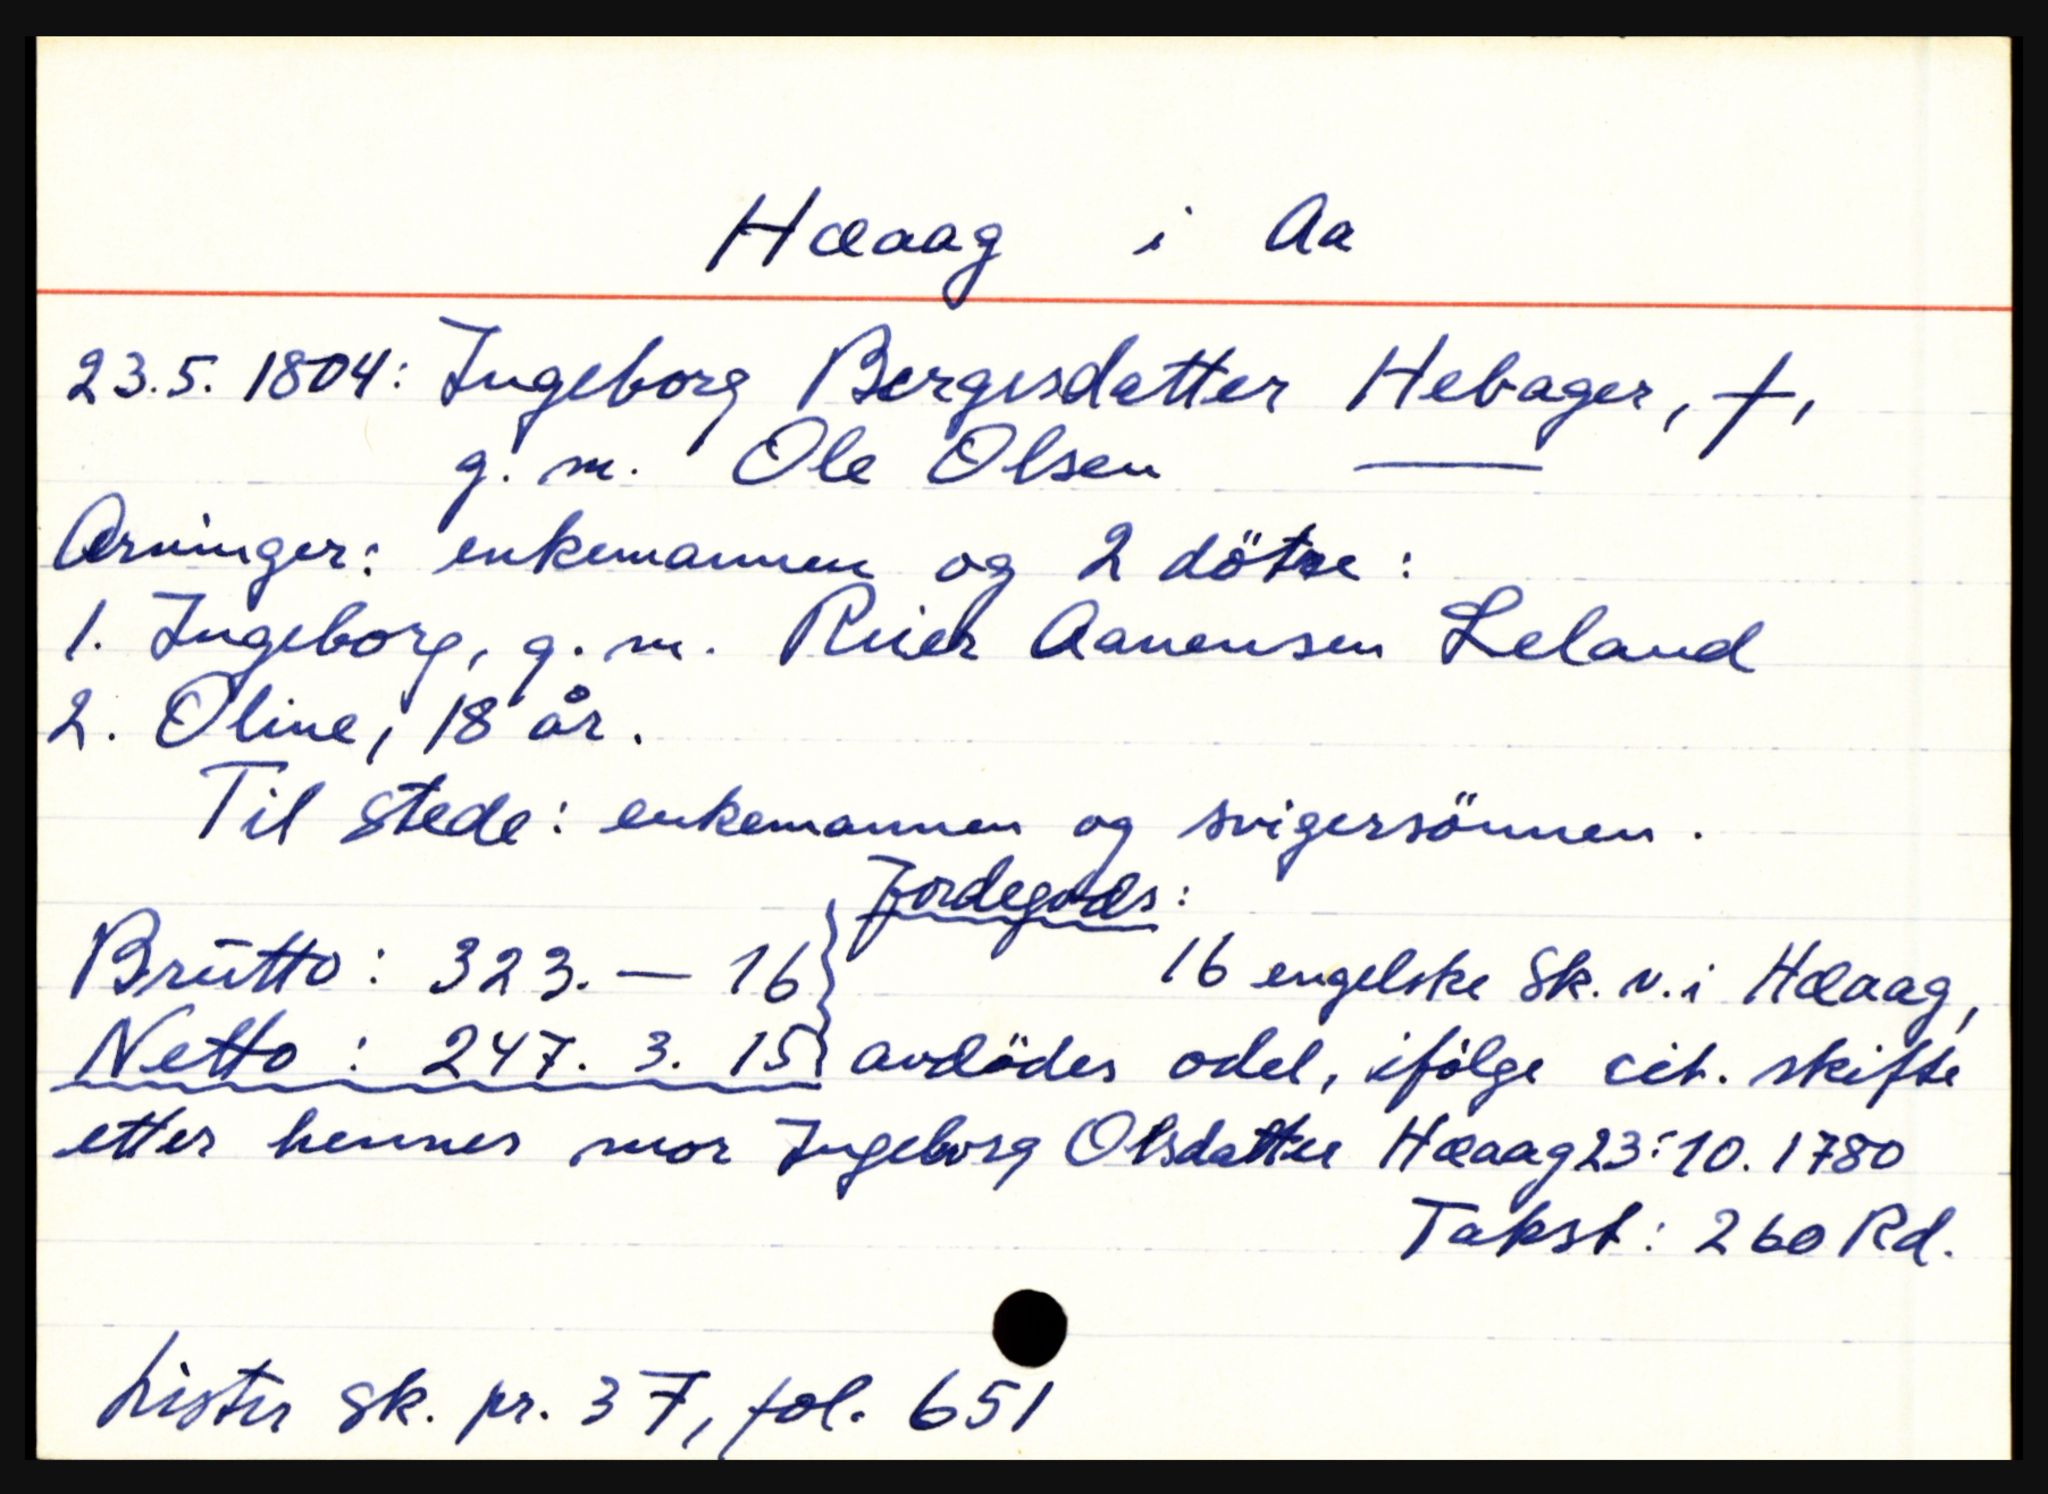 Hæaag i Aa
23.5. 1804: Ingeborg Bergesdatter Hebager, †,
g. m. Ole Olsen —
Arvinger: enkemannen og 2 dötre:
1. Ingeborg, g. m. Reier Aanensen Leland
2. Oline, 18 år.
Til stede: enkemannen og svigersönnen.
Jordegods:
Brutto: 323. — 16 } 16 engelske Sk. v. i Hæaag,
Netto: 247. 3. 15 } avdödes odel, ifölge cit. skifte
etter hennes mor Ingeborg Olsdatter Hæaag 23:10. 1780
Takst: 260 Rd.
Lister Sk. pr. 37, fol. 651